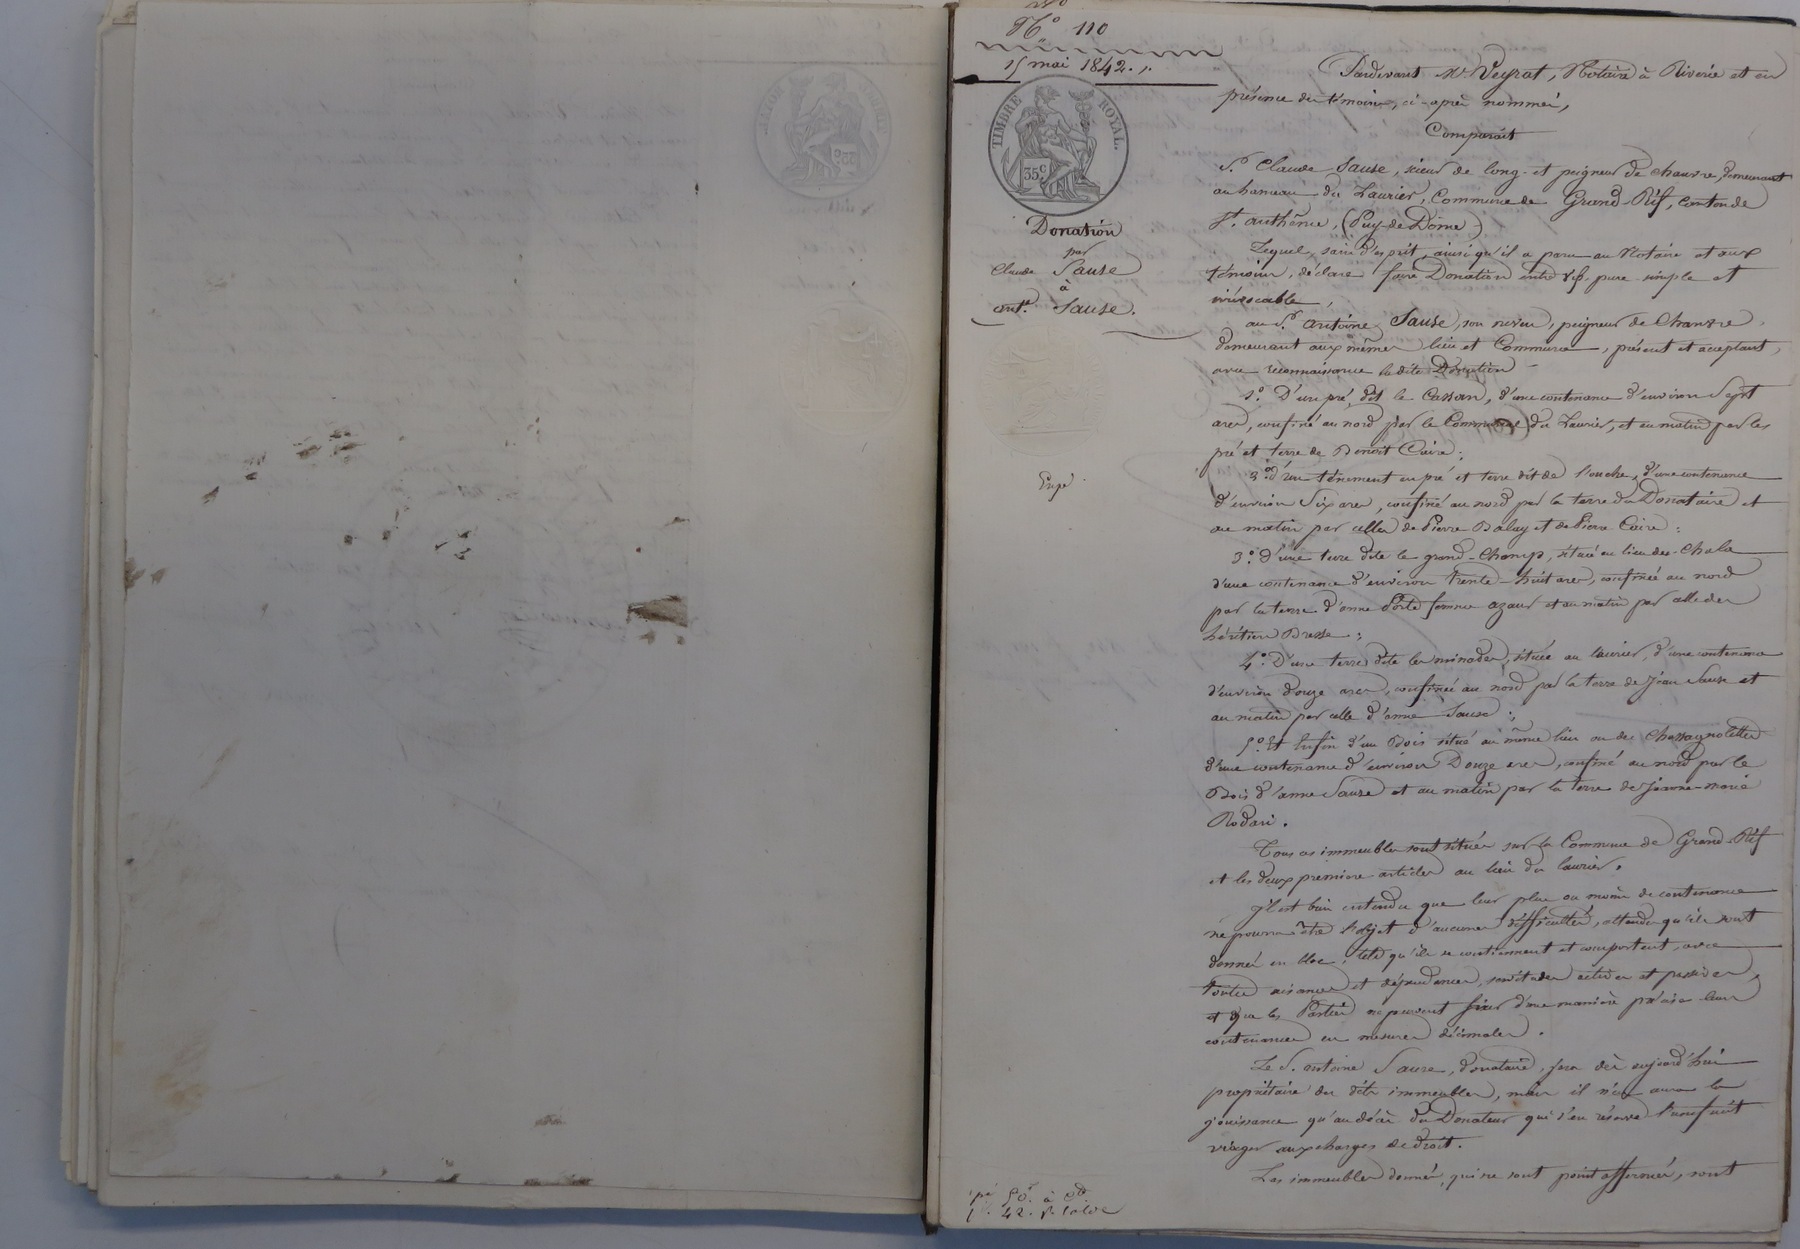 N° 110
15 mai 1842.
TIMBRE ROYAL.
35c
Donation
par
Claude Sause
à
ant.e Sause.
Expé
Pardevant Me Veyrat, Notaire à Riverie et en
présence des témoins, ci-après nommés,
Comparait
Sr. Claude Sause, scieur de long et peigneur de chanvre, demeurant
au hameau du Laurier, Commune de Grand-Rif, canton de
St. anthême, (Puy-de-Dôme)
Lequel, sain d'esprit, ainsi qu'il a paru au Notaire et aux
témoins, déclare faire Donation entre vifs, pure simple et
irrévocable,
au Sr. antoine Sause, son neveu, peigneur de Chanvre,
demeurant aux mêmes lieu et Commune, présent et acceptant,
avec reconnaissance ladite Donation
1°. D'un pré, dit le Cassan, d'une contenance d'environ Sept
ares, confiné au nord par le Commune du Laurier, et au matin par les
pré et terre de Benoit Coire;
2° d'un ténement en pré et terre dit de l'ouche, d'une contenance
d'environ Six ares, confiné au nord par la terre du Donataire et
au matin par celles de Pierre Balay et de Pierre Coire;
3°. d'une terre dite le grand-Champ, située au lieu des-Chala
d'une contenance d'environ trente-huit ares, confinée au nord
par la terre d'anne femme azaur et au matin par celle des
héritiers Bresse;
4°. D'une terre dite les minodes, située au laurier, d'une contenance
d'environ douze ares, confinée au nord par la terre de Jean Sause et
au matin par celle d'anne Sause;
5°. Et Enfin d'un Bois situé au même lieu ou des Chassagnolettes
d'une contenance d'environ Douze ares, confiné au nord par le
Bois d'anne Sause et au matin par la terre de Jeanne-marie
Rodari.
Tous ces immeubles sont situés sur la Commune de Grand-Rif
et les deux premiers articles au lieu du laurier.
Il est bien entendu que leur plus ou moins de contenance
ne pourra être l'objet d'aucune difficulté, attendu qu'ils sont
donnés en bloc, tels qu'ils se contiennent et comportent, avec
toutes aisances et dépendances, servitudes actives et passives,
et que les Parties ne peuvent fixer d'une manière précise leur
contenance en mesures décimales.
Le S. antoine Sause, donataire, sera dès aujourd'hui
propriétaire des dits immeubles, mais il n'en aura la
jouissance qu'au décès du Donateur qui s'en réserve l'usufruit
viager aux charges de droit.
Les immeubles donnés, qui ne sont point affermés, sont